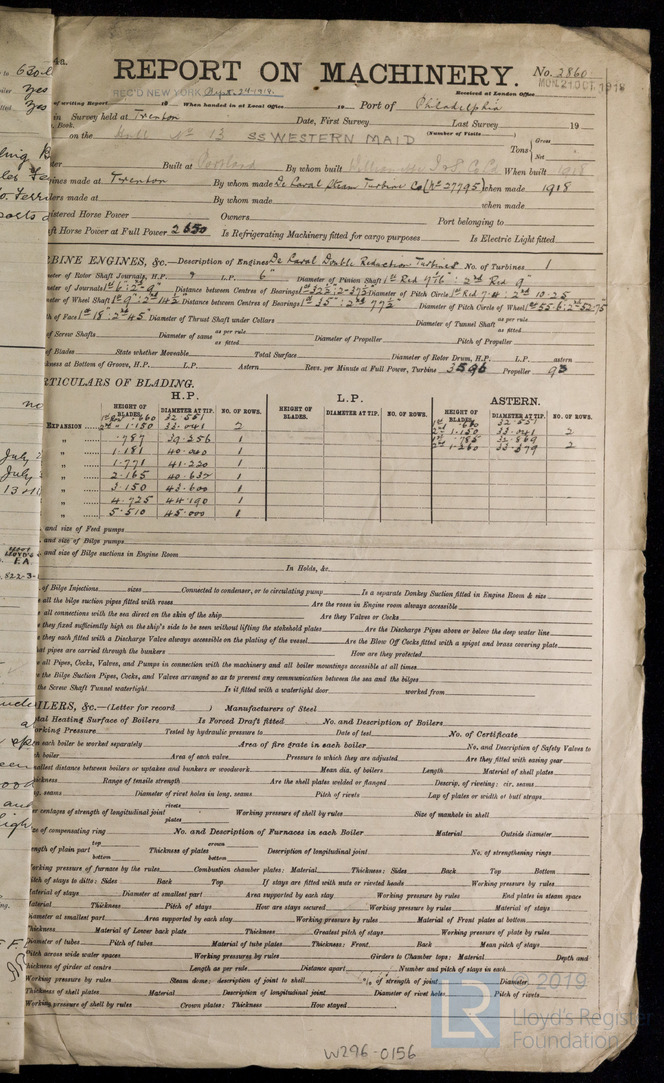 4a.
REPORT ON MACHINERY. No. 2860
REC'D NEW YORK Sept. 24-1918. Received at London Office MON. 21 OCT. 1918
of writing Report 19 When handed in at Local Office 19 Port of Philadelphia
in Survey held at Trenton Date, First Survey Last Survey 19
Book. (Number of Visits )
on the Hull No 13 SS WESTERN MAID Tons Gross Net
Built at Portland By whom built Willamette I & S Co Ld When built 1918
made at Trenton By whom made De Laval Steam Turbine Co (No 27795) when made 1918
made at By whom made when made
istered Horse Power Owners Port belonging to
ft Horse Power at Full Power 2650 Is Refrigerating Machinery fitted for cargo purposes Is Electric Light fitted
BINE ENGINES, &c.—Description of Engines De Laval Double Reduction Turbines No. of Turbines 1
eter of Rotor Shaft Journals, H.P. 9 L.P. 6" Diameter of Pinion Shaft 2nd Red 9"
eter of Journals Distance between Centres of Bearings Diameter of Pitch Circle 1st Red 7.4 : 2nd 10.25
eter of Wheel Shaft Distance between Centres of Bearings 1st 35" : 2nd 77½" Diameter of Pitch Circle of Wheel
th of Face 1st 18" : 2nd 45" Diameter of Thrust Shaft under Collars Diameter of Tunnel Shaft as per rule as fitted
of Screw Shafts Diameter of same as per rule as fitted Diameter of Propeller Pitch of Propeller
of Blades State whether Moveable Total Surface Diameter of Rotor Drum, H.P. L.P. astern
kness at Bottom of Groove, H.P. L.P. Astern Revs. per Minute at Full Power, Turbine 3596 Propeller 93
RTICULARS OF BLADING.
H.P. L.P. ASTERN.
HEIGHT OF BLADES. DIAMETER AT TIP. NO. OF ROWS. HEIGHT OF BLADES. DIAMETER AT TIP. NO. OF ROWS. HEIGHT OF BLADES. DIAMETER AT TIP. NO. OF ROWS.
1st .660 32.551 1st .670 32.551
EXPANSION 2nd 1.150 33.041 2 2nd 1.150 33.041 2
" .787 39.256 1 1st .785 32.869
" 1.181 40.040 1 2nd 1.260 33.379 2
" 1.771 41.220 1
" 2.165 40.632 1
" 3.150 43.600 1
" 4.725 44.190 1
" 5.510 45.000 1
and size of Feed pumps
and size of Bilge pumps
and size of Bilge suctions in Engine Room
In Holds, &c.
of Bilge Injections sizes Connected to condenser, or to circulating pump Is a separate Donkey Suction fitted in Engine Room & size
all the bilge suction pipes fitted with roses Are the roses in Engine room always accessible
all connections with the sea direct on the skin of the ship Are they Valves or Cocks
they fixed sufficiently high on the ship's side to be seen without lifting the stokehold plates Are the Discharge Pipes above or below the deep water line
they each fitted with a Discharge Valve always accessible on the plating of the vessel Are the Blow Off Cocks fitted with a spigot and brass covering plate
at pipes are carried through the bunkers How are they protected
all Pipes, Cocks, Valves, and Pumps in connection with the machinery and all boiler mountings accessible at all times
the Bilge Suction Pipes, Cocks, and Valves arranged so as to prevent any communication between the sea and the bilges
the Screw Shaft Tunnel watertight Is it fitted with a watertight door worked from
ILERS, &c.—(Letter for record ) Manufacturers of Steel
tal Heating Surface of Boilers Is Forced Draft fitted No. and Description of Boilers
orking Pressure Tested by hydraulic pressure to Date of test No. of Certificate
n each boiler be worked separately Area of fire grate in each boiler No. and Description of Safety Valves to
h boiler Area of each valve Pressure to which they are adjusted Are they fitted with easing gear
mallest distance between boilers or uptakes and bunkers or woodwork Mean dia. of boilers Length Material of shell plates
hickness Range of tensile strength Are the shell plates welded or flanged Descrip. of riveting: cir. seams
ng. seams Diameter of rivet holes in long. seams Pitch of rivets Lap of plates or width of butt straps
er centages of strength of longitudinal joint rivets plates Working pressure of shell by rules Size of manhole in shell
ze of compensating ring No. and Description of Furnaces in each Boiler Material Outside diameter
ength of plain part top bottom Thickness of plates crown bottom Description of longitudinal joint No. of strengthening rings
orking pressure of furnace by the rules Combustion chamber plates: Material Thickness: Sides Back Top Bottom
itch of stays to ditto: Sides Back Top If stays are fitted with nuts or riveted heads Working pressure by rules
aterial of stays Diameter at smallest part Area supported by each stay Working pressure by rules End plates in steam space
aterial Thickness Pitch of stays How are stays secured Working pressure by rules Material of stays
iameter at smallest part Area supported by each stay Working pressure by rules Material of Front plates at bottom
hickness Material of Lower back plate Thickness Greatest pitch of stays Working pressure of plate by rules
Diameter of tubes Pitch of tubes Material of tube plates Thickness: Front Back Mean pitch of stays
itch across wide water spaces Working pressures by rules Girders to Chamber tops: Material Depth and
hickness of girder at centre Length as per rule Distance apart Number and pitch of stays in each
Working pressure by rules Steam dome: description of joint to shell % of strength of joint Diameter
Thickness of shell plates Material Description of longitudinal joint Diameter of rivet holes Pitch of rivets
Working pressure of shell by rules Crown plates: Thickness How stayed
© 2019
LR Lloyd's Register Foundation
W296-0156